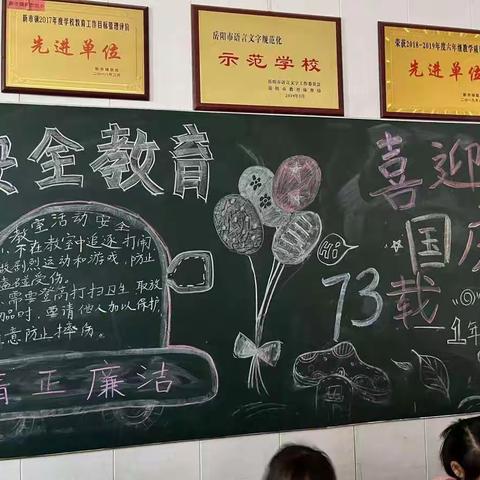 新市镇2017年度学校教育工作目标管理评估
先进单位
新市镇党委
二〇一八年二月
岳阳市语言文字规范化
示范学校
岳阳市语言文字工作委员会
岳阳市教育体育局
2019年5月
荣获2018-2019年度六年级教学质
先进单位
安全教育
教室活动安全
不在教室中追逐打闹
做剧烈运动和游戏,防止
磕碰受伤。
需要登高打扫卫生 取放
物品时,要请他人加以保护
注意防止摔伤。
清正廉洁
Hi
73
喜迎
国庆
载
1年